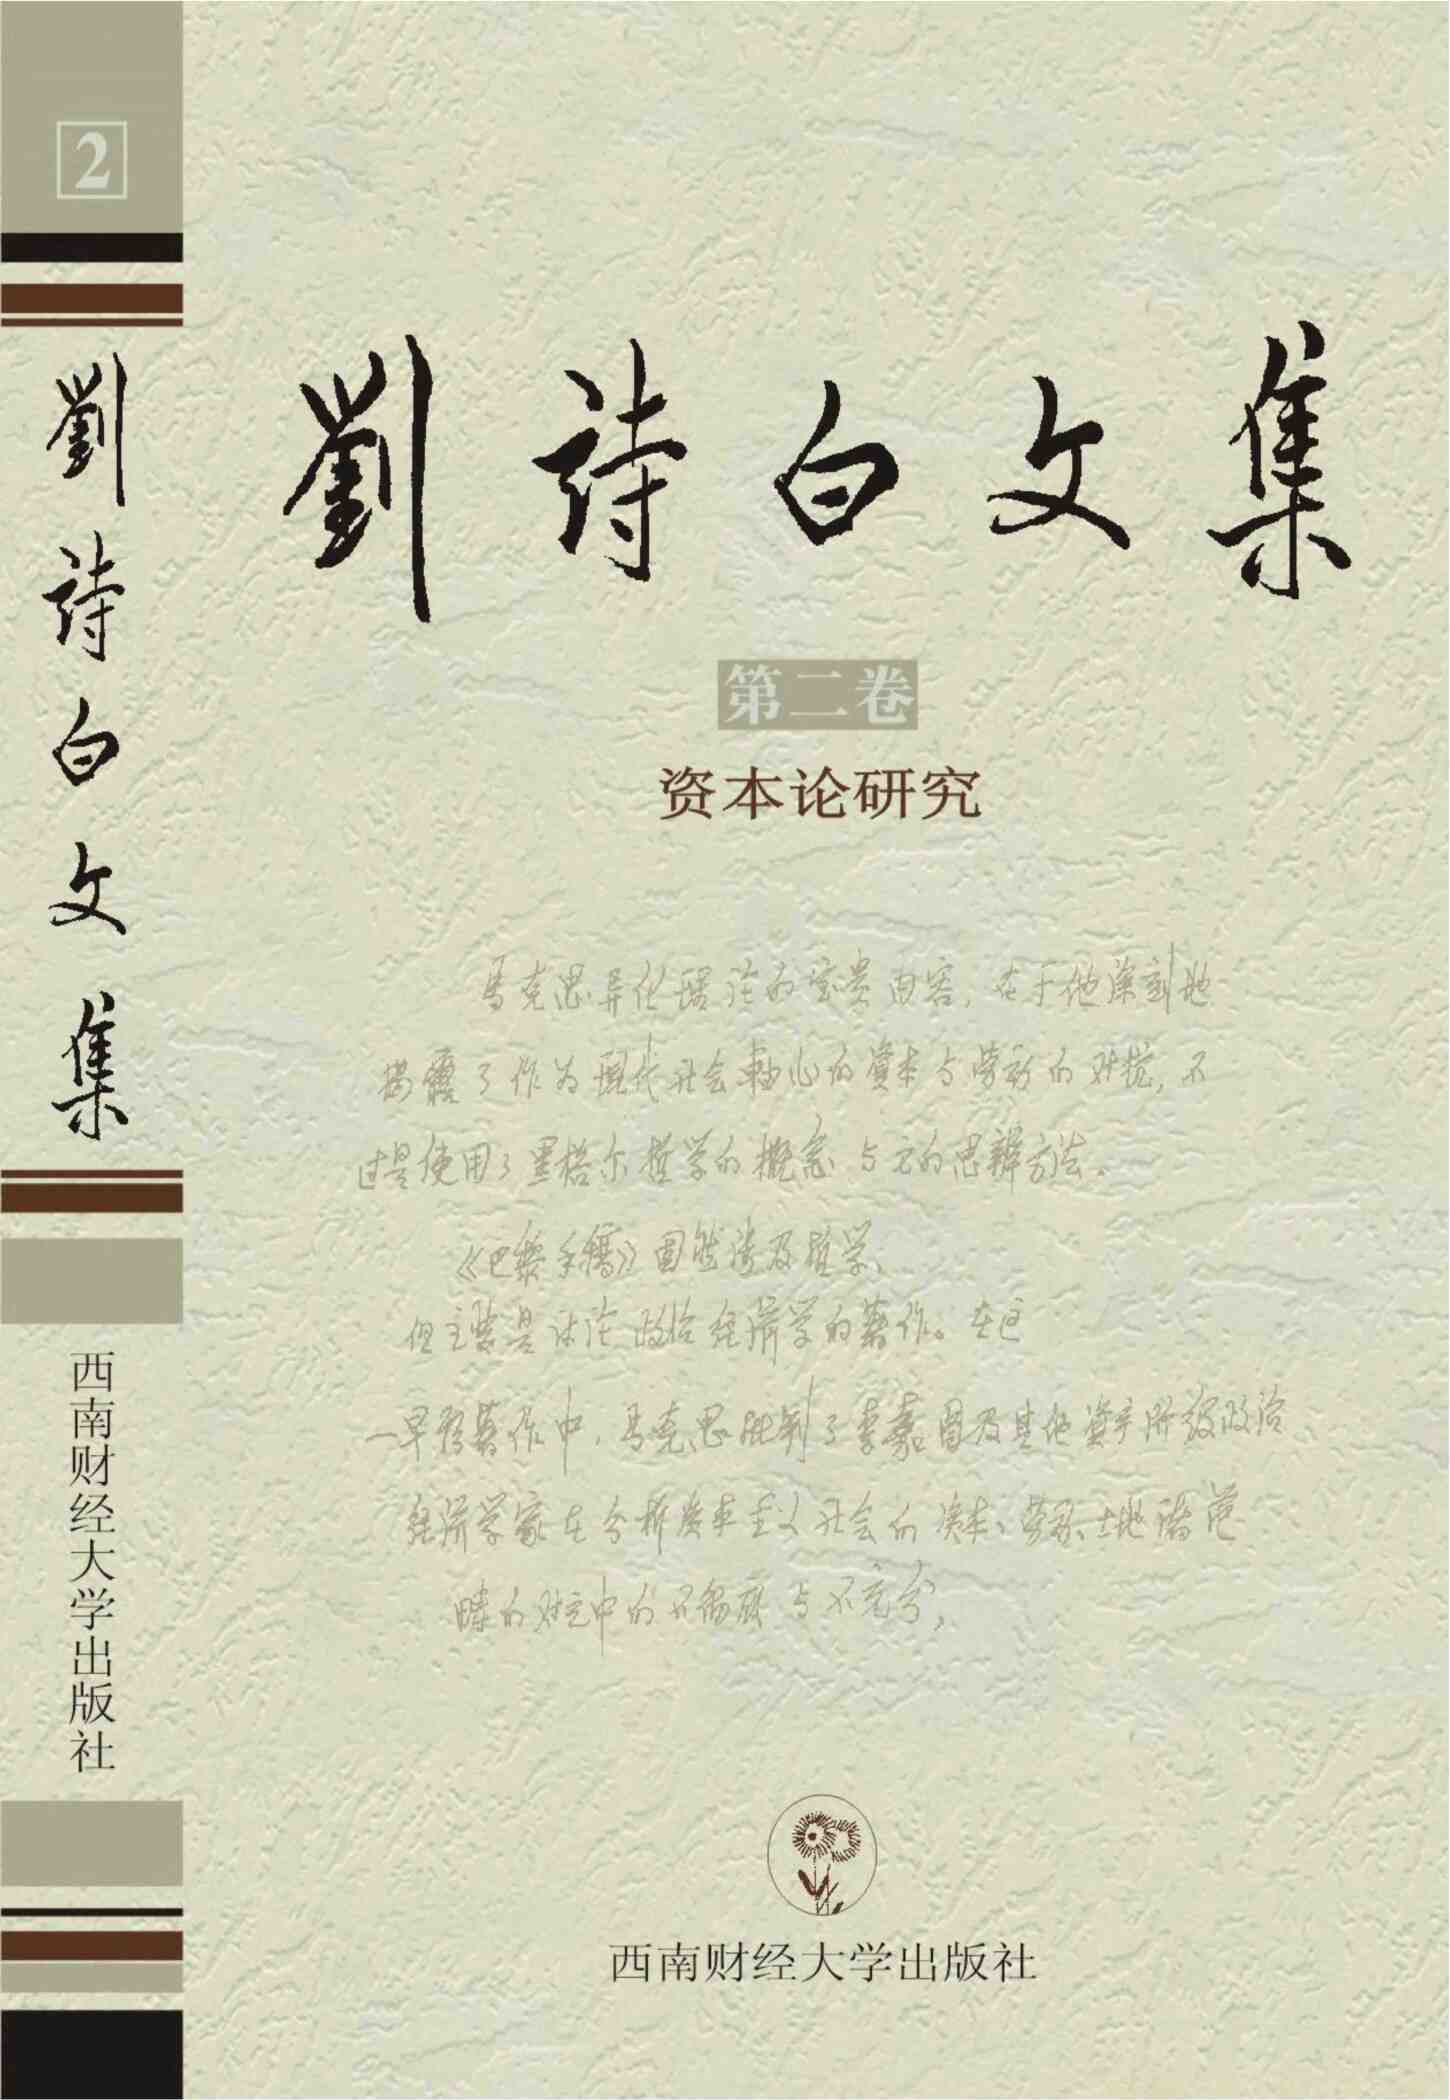 2
劉詩白文集
西南财经大学出版社
劉詩白文集
第二卷
资本论研究
马克思异化理论的宝贵内容，在于他深刻地
揭露了作为现代社会轴心的資本与劳动的对抗，不
过是使用了黑格尔哲学的概念与它的思辨方法。
《巴黎手稿》固然涉及哲学、
但主要是讨论政治经济学的著作。在这
一早期著作中，马克思批判了李嘉图及其他資产阶级政治
经济学家在分析资本主义社会的资本、劳动、土地诸范
畴的对立中的不彻底与不充分，
西南财经大学出版社